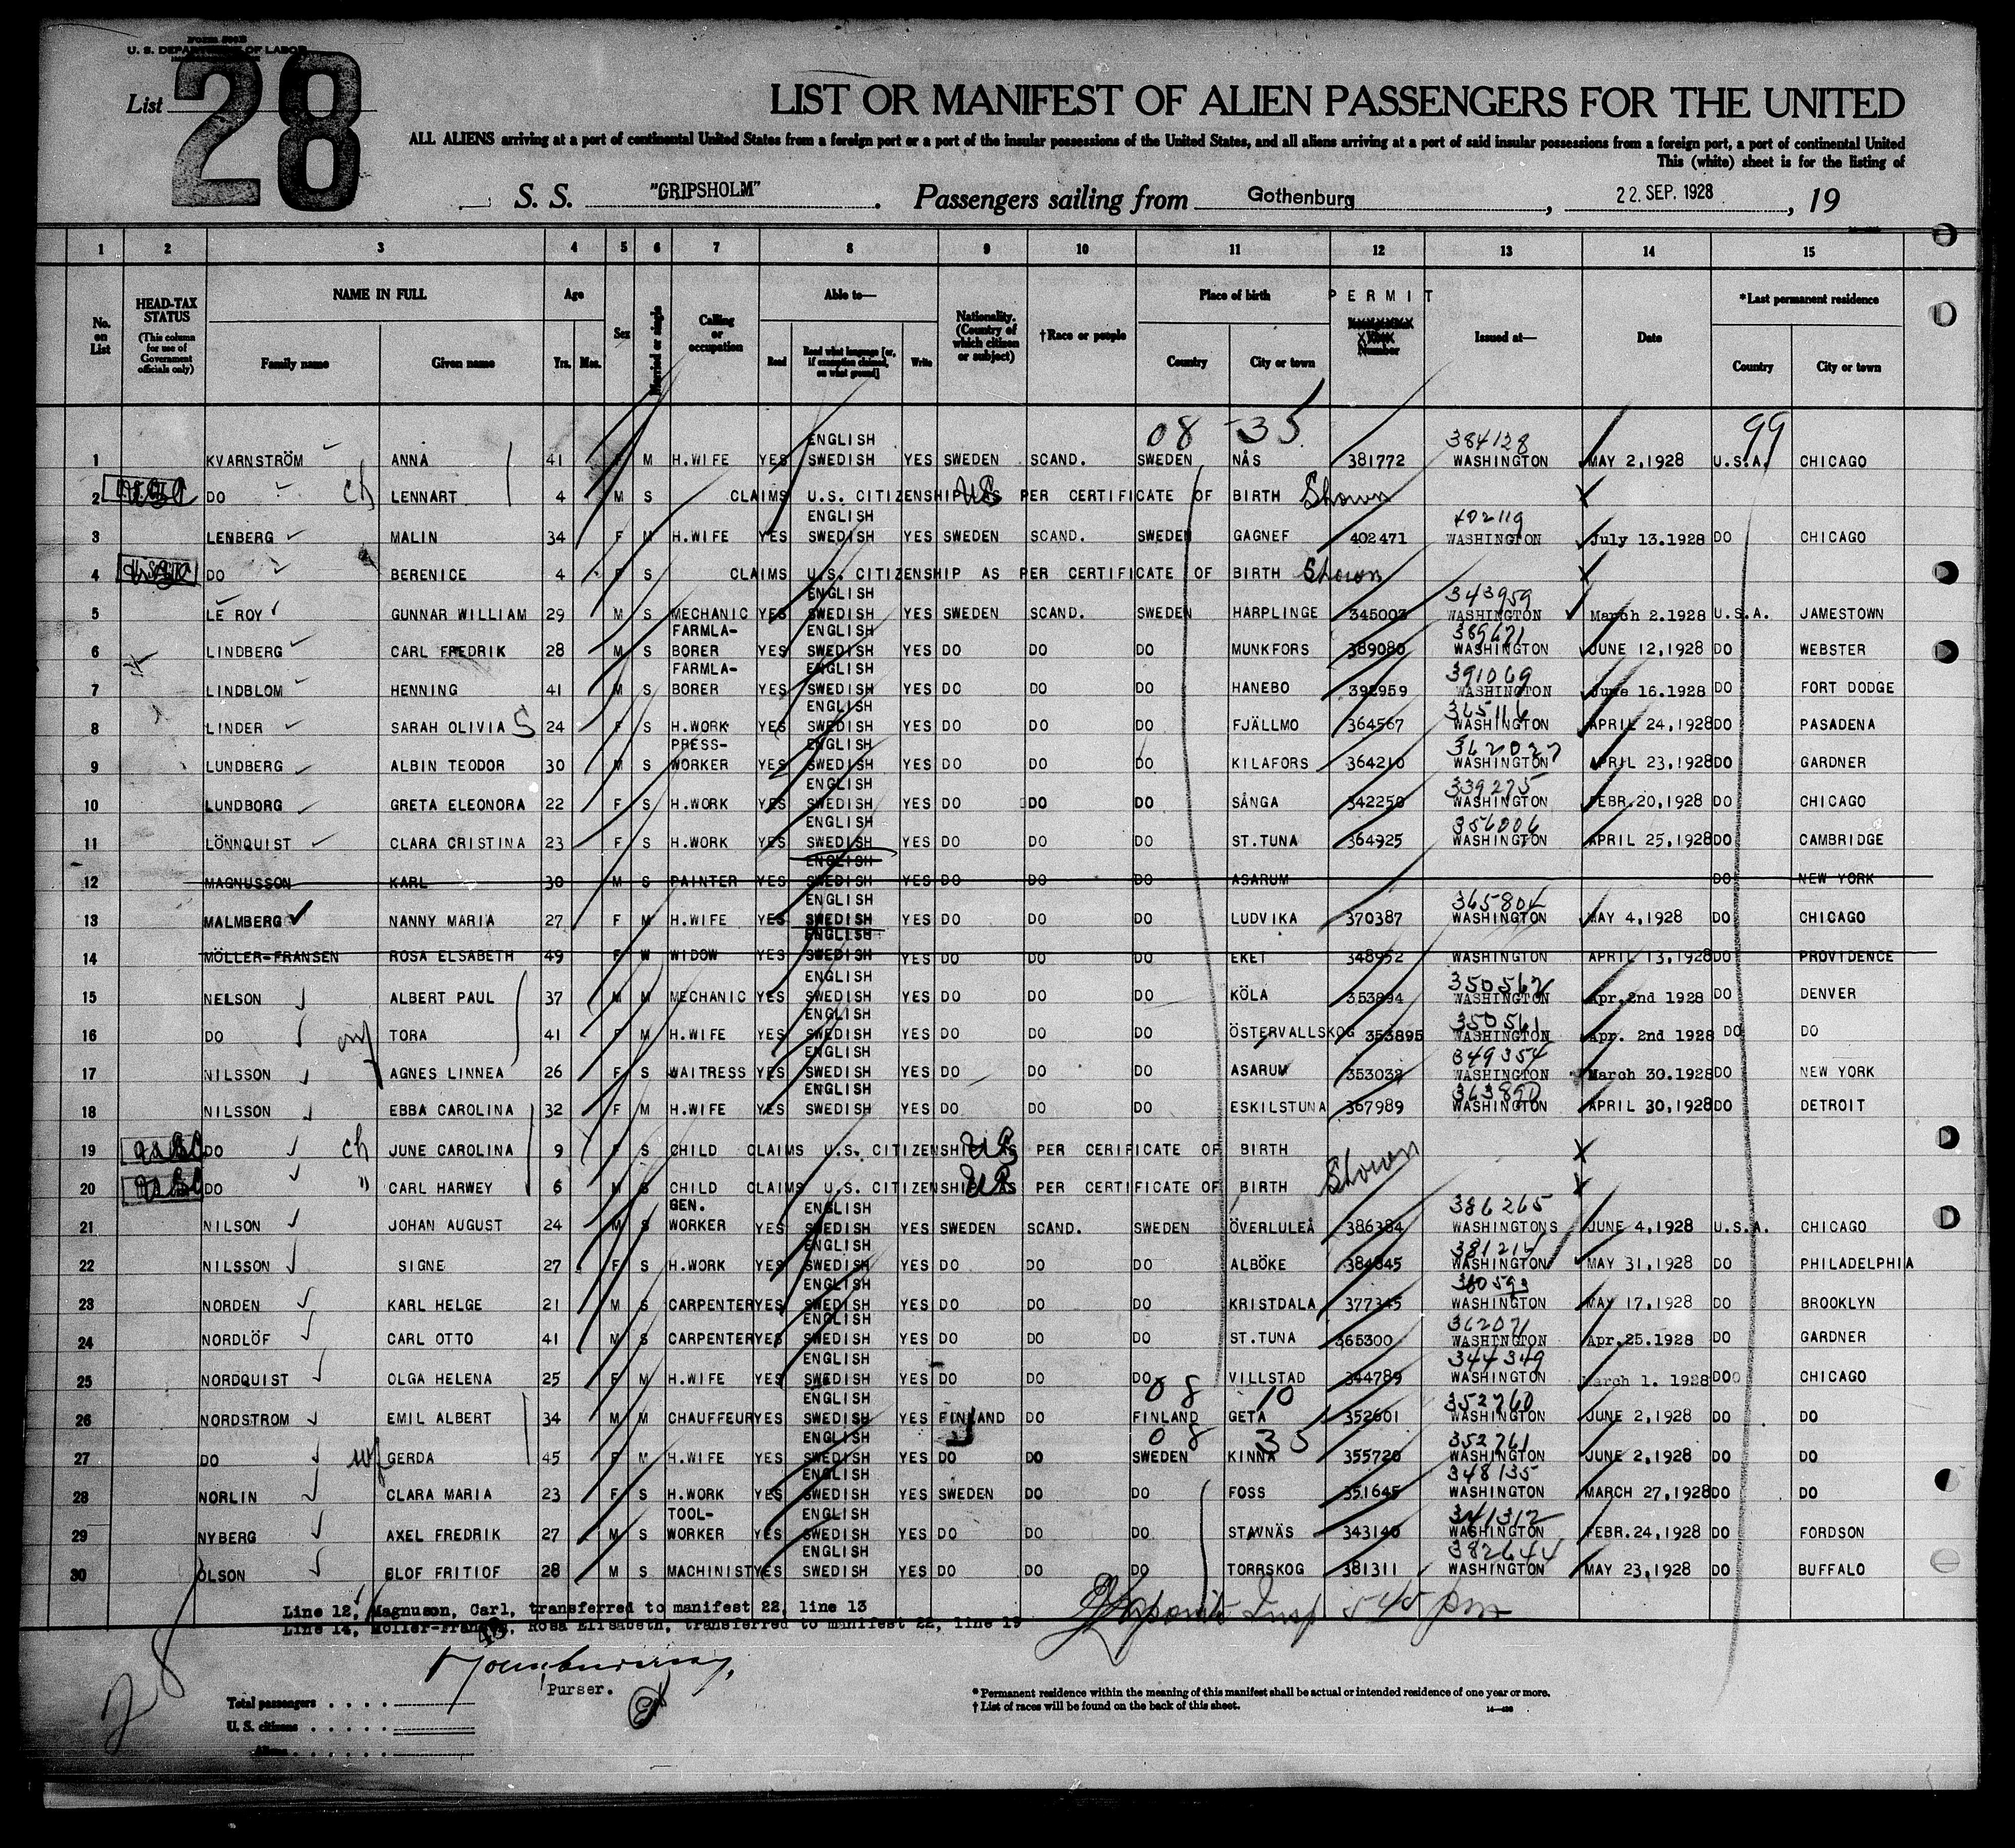 FORM 500B
U. S. DEPARTMENT OF LABOR
List 28
LIST OR MANIFEST OF ALIEN PASSENGERS FOR THE UNITED
ALL ALIENS arriving at a port of continental United States from a foreign port or a port of the insular possessions of the United States, and all aliens arriving at a port of said insular possessions from a foreign port, a port of continental United
This (white) sheet is for the listing of
S. S. "GRIPSHOLM". Passengers sailing from Gothenburg, 22. SEP. 1928, 19
1 2 3 4 5 6 7 8 9 10 11 12 13 14 15
No. on List
HEAD-TAX STATUS (This column for use of Government officials only)
NAME IN FULL Family name Given name
Age Yrs. Mos.
Sex
Married or single
Calling or occupation
Able to— Read Read what language [or, if exemption claimed, on what ground] Write
Nationality. (Country of which citizen or subject)
†Race or people
Place of birth Country City or town
PERMIT Number
Issued at—
Date
*Last permanent residence Country City or town
08 -35 99
1 KVARNSTRÖM ANNA 41 F M H.WIFE YES ENGLISH SWEDISH YES SWEDEN SCAND. SWEDEN NÅS 381772 384128 WASHINGTON MAY 2,1928 U.S.A. CHICAGO
2 DO ch LENNART 4 M S CLAIMS U.S. CITIZENSHIP AS PER CERTIFICATE OF BIRTH Shown
3 LENBERG MALIN 34 F M H.WIFE YES ENGLISH SWEDISH YES SWEDEN SCAND. SWEDEN GAGNEF 402471 402119 WASHINGTON July 13.1928 DO CHICAGO
4 DO BERENICE 4 F S CLAIMS U.S. CITIZENSHIP AS PER CERTIFICATE OF BIRTH Shown
5 LE ROY GUNNAR WILLIAM 29 M S MECHANIC YES ENGLISH SWEDISH YES SWEDEN SCAND. SWEDEN HARPLINGE 345003 343959 WASHINGTON March 2.1928 U.S.A. JAMESTOWN
6 LINDBERG CARL FREDRIK 28 M S FARMLA-BORER YES ENGLISH SWEDISH YES DO DO DO MUNKFORS 389080 389671 WASHINGTON JUNE 12,1928 DO WEBSTER
7 LINDBLOM HENNING 41 M S FARMLA-BORER YES ENGLISH SWEDISH YES DO DO DO HANEBO 392959 391069 WASHINGTON June 16.1928 DO FORT DODGE
8 LINDER SARAH OLIVIA S 24 F S H.WORK YES ENGLISH SWEDISH YES DO DO DO FJÄLLMO 364567 365116 WASHINGTON APRIL 24,1928 DO PASADENA
9 LUNDBERG ALBIN TEODOR 30 M S PRESS-WORKER YES ENGLISH SWEDISH YES DO DO DO KILAFORS 364210 362027 WASHINGTON APRIL 23,1928 DO GARDNER
10 LUNDBORG GRETA ELEONORA 22 F S H.WORK YES ENGLISH SWEDISH YES DO DO DO SÅNGA 342250 339275 WASHINGTON FEBR.20,1928 DO CHICAGO
11 LÖNNQUIST CLARA CRISTINA 23 F S H.WORK YES ENGLISH SWEDISH YES DO DO DO ST.TUNA 364925 356006 WASHINGTON APRIL 25,1928 DO CAMBRIDGE
12 MAGNUSSON KARL 30 M S PAINTER YES ENGLISH SWEDISH YES DO DO DO ASARUM DO NEW YORK
13 MALMBERG NANNY MARIA 27 F M H.WIFE YES ENGLISH SWEDISH YES DO DO DO LUDVIKA 370387 365804 WASHINGTON MAY 4,1928 DO CHICAGO
14 MÖLLER-FRANSEN ROSA ELSABETH 49 F W WIDOW YES ENGLISH SWEDISH YES DO DO DO EKET 348952 WASHINGTON APRIL 13,1928 DO PROVIDENCE
15 NELSON ALBERT PAUL 37 M M MECHANIC YES ENGLISH SWEDISH YES DO DO DO KÖLA 353894 350562 WASHINGTON Apr.2nd 1928 DO DENVER
16 DO wf TORA 41 F M H.WIFE YES ENGLISH SWEDISH YES DO DO DO ÖSTERVALLSKOG 353895 350561 WASHINGTON Apr. 2nd 1928 DO DO
17 NILSSON AGNES LINNEA 26 F S WAITRESS YES ENGLISH SWEDISH YES DO DO DO ASARUM 353038 349354 WASHINGTON March 30.1928 DO NEW YORK
18 NILSSON EBBA CAROLINA 32 F M H.WIFE YES ENGLISH SWEDISH YES DO DO DO ESKILSTUNA 367989 363890 WASHINGTON APRIL 30,1928 DO DETROIT
19 DO ch JUNE CAROLINA 9 F S CHILD CLAIMS U.S. CITIZENSHIP AS PER CERIFICATE OF BIRTH
20 DO " CARL HARWEY 6 M S CHILD CLAIMS U.S. CITIZENSHIP AS PER CERTIFICATE OF BIRTH Shown
21 NILSON JOHAN AUGUST 24 M S GEN. WORKER YES ENGLISH SWEDISH YES SWEDEN SCAND. SWEDEN ÖVERLULEÅ 386384 386265 WASHINGTONS JUNE 4,1928 U.S.A. CHICAGO
22 NILSSON SIGNE 27 F S H.WORK YES ENGLISH SWEDISH YES DO DO DO ALBÖKE 384845 381214 WASHINGTON MAY 31,1928 DO PHILADELPHIA
23 NORDEN KARL HELGE 21 M S CARPENTER YES ENGLISH SWEDISH YES DO DO DO KRISTDALA 377345 380593 WASHINGTON MAY 17,1928 DO BROOKLYN
24 NORDLÖF CARL OTTO 41 M S CARPENTER YES ENGLISH SWEDISH YES DO DO DO ST.TUNA 365300 362071 WASHINGTON Apr.25.1928 DO GARDNER
25 NORDQUIST OLGA HELENA 25 F M H.WIFE YES ENGLISH SWEDISH YES DO DO DO VILLSTAD 344789 344349 WASHINGTON March 1. 1928 DO CHICAGO
08 10
26 NORDSTROM EMIL ALBERT 34 M M CHAUFFEUR YES ENGLISH SWEDISH YES FINLAND DO FINLAND GETA 352601 352760 WASHINGTON JUNE 2,1928 DO DO
08 35
27 DO wf GERDA 45 F M H.WIFE YES ENGLISH SWEDISH YES DO DO SWEDEN KINNA 355720 352761 WASHINGTON JUNE 2,1928 DO DO
28 NORLIN CLARA MARIA 23 F S H.WORK YES ENGLISH SWEDISH YES SWEDEN DO DO FOSS 351645 348135 WASHINGTON MARCH 27,1928 DO DO
29 NYBERG AXEL FREDRIK 27 M S TOOL-WORKER YES ENGLISH SWEDISH YES DO DO DO STAVNÄS 343140 341312 WASHINGTON FEBR.24,1928 DO FORDSON
30 OLSON OLOF FRITIOF 28 M S MACHINIST YES ENGLISH SWEDISH YES DO DO DO TORRSKOG 381311 382644 WASHINGTON MAY 23,1928 DO BUFFALO
Line 12, Magnuson, Carl, transferred to manifest 22, line 13
Line 14, Möller-Fransen, Rosa Elisabeth, transferred to manifest 22, line 19
Insp 545 pm
28
Purser.
Total passengers
U. S. citizens
Aliens
* Permanent residence within the meaning of this manifest shall be actual or intended residence of one year or more.
† List of races will be found on the back of this sheet.